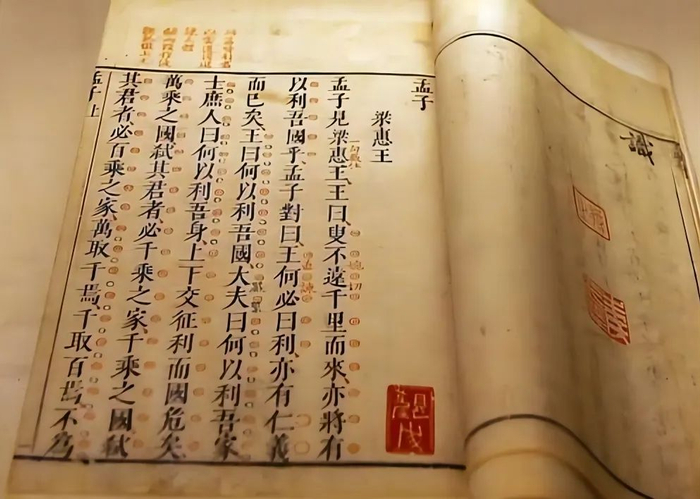 識
孟子
梁惠王
孟子見梁惠王、王曰、叟不遠千里而來、亦將有
以利吾國乎、孟子對曰、王何必曰利、亦有仁義
而已矣、王曰何以利吾國大夫曰何以利吾家
士庶人曰何以利吾身、上下交征利而國危矣、
萬乘之國弑其君者、必千乘之家、千乘之國弑
其君者、必百乘之家、萬取千焉、千取百焉、不為
孟子上